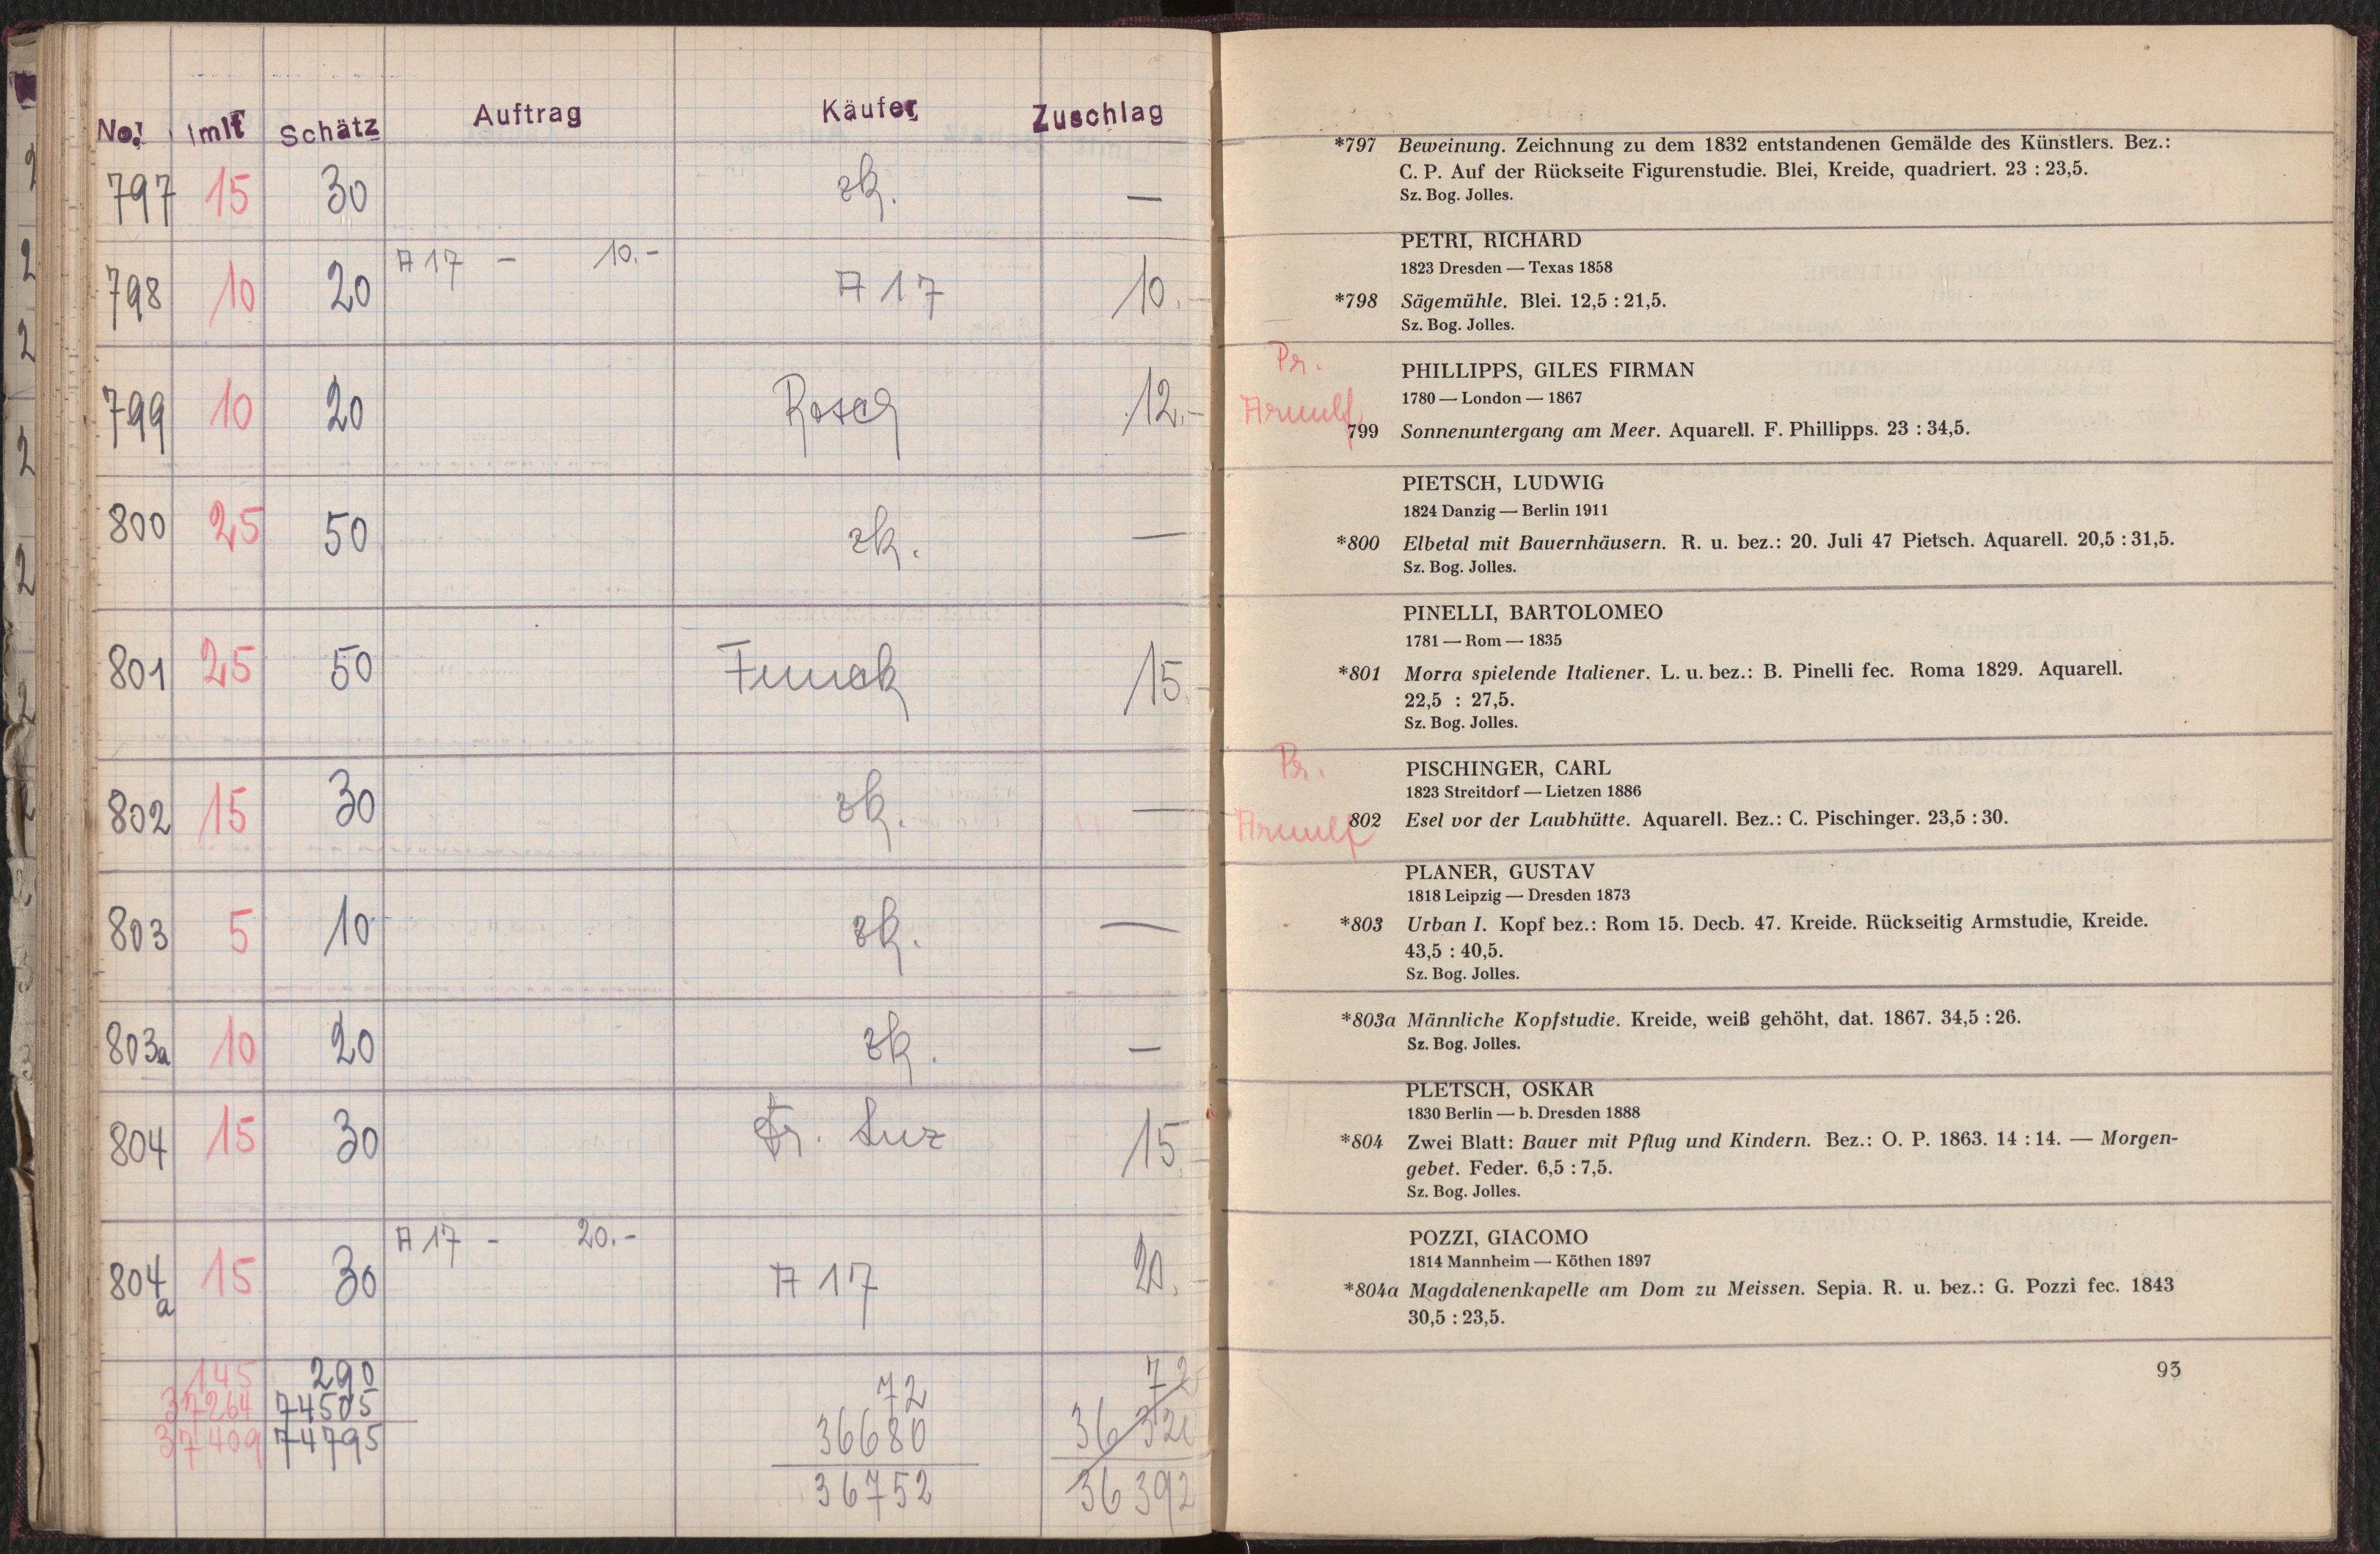 No. Imlt Schätz Auftrag Käufer Zuschlag
797 15 30 zk. —
798 10 20 A 17 – 10.- A 17 10.-
799 10 20 Rosch 12.-
800 25 50 zk. —
801 25 50 Funck 15.-
802 15 30 zk. —
803 5 10 zk. —
803a 10 20 zk. —
804 15 30 Fr. Luz 15.-
804a 15 30 A 17 – 20.- A 17 20.-
145 290 72 72
37264 74505 36680 36320
37409 74795 36752 36392
*797 Beweinung. Zeichnung zu dem 1832 entstandenen Gemälde des Künstlers. Bez.:
C. P. Auf der Rückseite Figurenstudie. Blei, Kreide, quadriert. 23 : 23,5.
Sz. Bog. Jolles.
PETRI, RICHARD
1823 Dresden — Texas 1858
*798 Sägemühle. Blei. 12,5 : 21,5.
Sz. Bog. Jolles.
Pr.
PHILLIPPS, GILES FIRMAN
1780 — London — 1867
Arnulf
799 Sonnenuntergang am Meer. Aquarell. F. Phillipps. 23 : 34,5.
PIETSCH, LUDWIG
1824 Danzig — Berlin 1911
*800 Elbetal mit Bauernhäusern. R. u. bez.: 20. Juli 47 Pietsch. Aquarell. 20,5 : 31,5.
Sz. Bog. Jolles.
PINELLI, BARTOLOMEO
1781 — Rom — 1835
*801 Morra spielende Italiener. L. u. bez.: B. Pinelli fec. Roma 1829. Aquarell.
22,5 : 27,5.
Sz. Bog. Jolles.
Pr.
PISCHINGER, CARL
1823 Streitdorf — Lietzen 1886
Arnulf
802 Esel vor der Laubhütte. Aquarell. Bez.: C. Pischinger. 23,5 : 30.
PLANER, GUSTAV
1818 Leipzig — Dresden 1873
*803 Urban I. Kopf bez.: Rom 15. Decb. 47. Kreide. Rückseitig Armstudie, Kreide.
43,5 : 40,5.
Sz. Bog. Jolles.
*803a Männliche Kopfstudie. Kreide, weiß gehöht, dat. 1867. 34,5 : 26.
Sz. Bog. Jolles.
PLETSCH, OSKAR
1830 Berlin — b. Dresden 1888
*804 Zwei Blatt: Bauer mit Pflug und Kindern. Bez.: O. P. 1863. 14 : 14. — Morgen-
gebet. Feder. 6,5 : 7,5.
Sz. Bog. Jolles.
POZZI, GIACOMO
1814 Mannheim — Köthen 1897
*804a Magdalenenkapelle am Dom zu Meissen. Sepia. R. u. bez.: G. Pozzi fec. 1843
30,5 : 23,5.
93